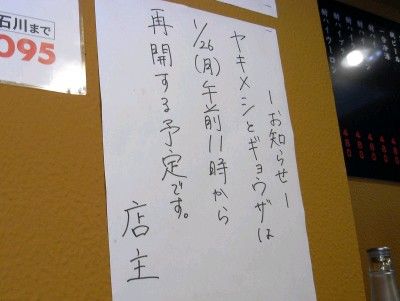 ーお知らせー
ヤキメシとギョウザは
1/26(月)午前11時から
再開する予定です。
店主
石川まで
095